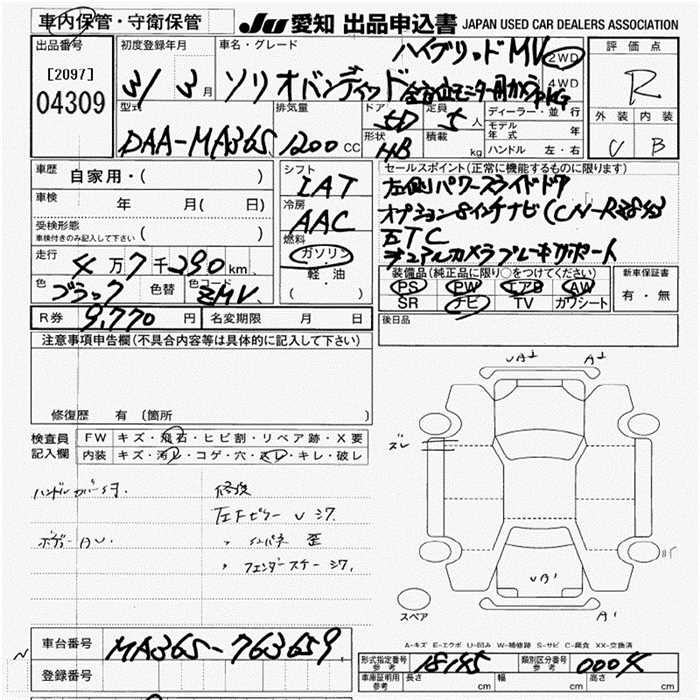 車内保管・守衛保管
JU 愛知 出品申込書 JAPAN USED CAR DEALERS ASSOCIATION
出品番号
[2097]
04309
初度登録年月
3/3月
車名・グレード
ハイブリッドMV
ソリオバンディット
2WD
4WD
評価点
R
型式
DAA-MA36S
排気量
1200 CC
ドア
5D
形状
HB
定員
5人
積載
kg
ディーラー・並行
モデル年式 年
ハンドル 左・右
外装 内装
U B
車歴
自家用・( )
車検
年 月( 日)
受検形態
車検付きのみ記入して下さい ( )
走行
4万7千290km
色
ブラック
色替
色コード
ZMV
シフト
IAT
冷房
AAC
燃料
ガソリン
軽・油
( )
セールスポイント(正常に機能するものに限ります)
左側パワースライドドア
オプション8インチナビ
ETC
デュアルカメラブレーキサポート
装備品(純正品に限り○をつけてください)
PS PW エアB AW
SR ナビ TV カワシート
新車保証書
有・無
R券 9,770円
名変期限 月 日
後日品
注意事項申告欄(不具合内容等は具体的に記入して下さい)
修復歴 有(箇所 )
検査員
記入欄
FW キズ・飛石・ヒビ割・リペア跡・X要
内装 キズ・汚レ・コゲ・穴・スレ・キレ・破レ
ハンドルカバー付
ボデー AU
修復
左Fピラー U シワ
〃 インパネ 歪
〃 フェンダーステー シワ
UA2 A2
ズレ
UA1
A1
スペア
A-キズ E-エクボ U-凹み W-補修跡 S-サビ C-腐食 XX-交換済
車台番号
MA36S-763659
登録番号
形式指定番号
参考
18145
類別区分番号
参考
0004
車庫証明用
参考
長さ cm
幅 cm
高さ cm